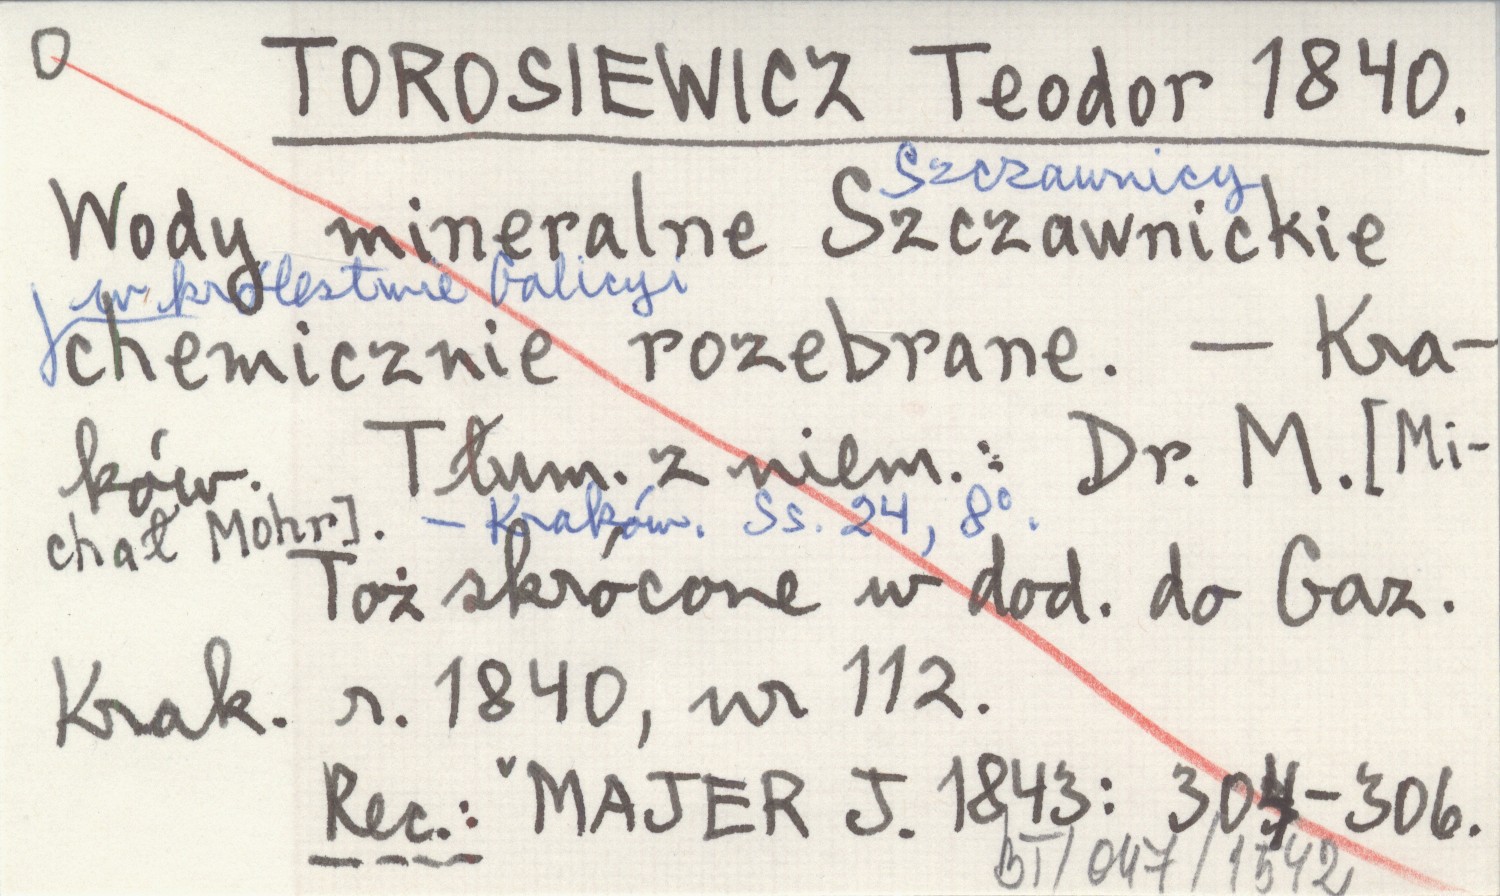 O TOROSIEWICZ Teodor 1840.
Szczawnicy
Wody mineralne Szczawnickie
w królestwie Galicyi
chemicznie rozebrane. — Kra-
ków. Tłum. z niem.: Dr. M. [Mi-
chał Mohr]. — Kraków. Ss. 24, 8°.
Toż skrócone w dod. do Gaz.
Krak. r. 1840, nr 112.
Rec.: ˇMAJER J. 1843: 304-306.
BT/047/1542